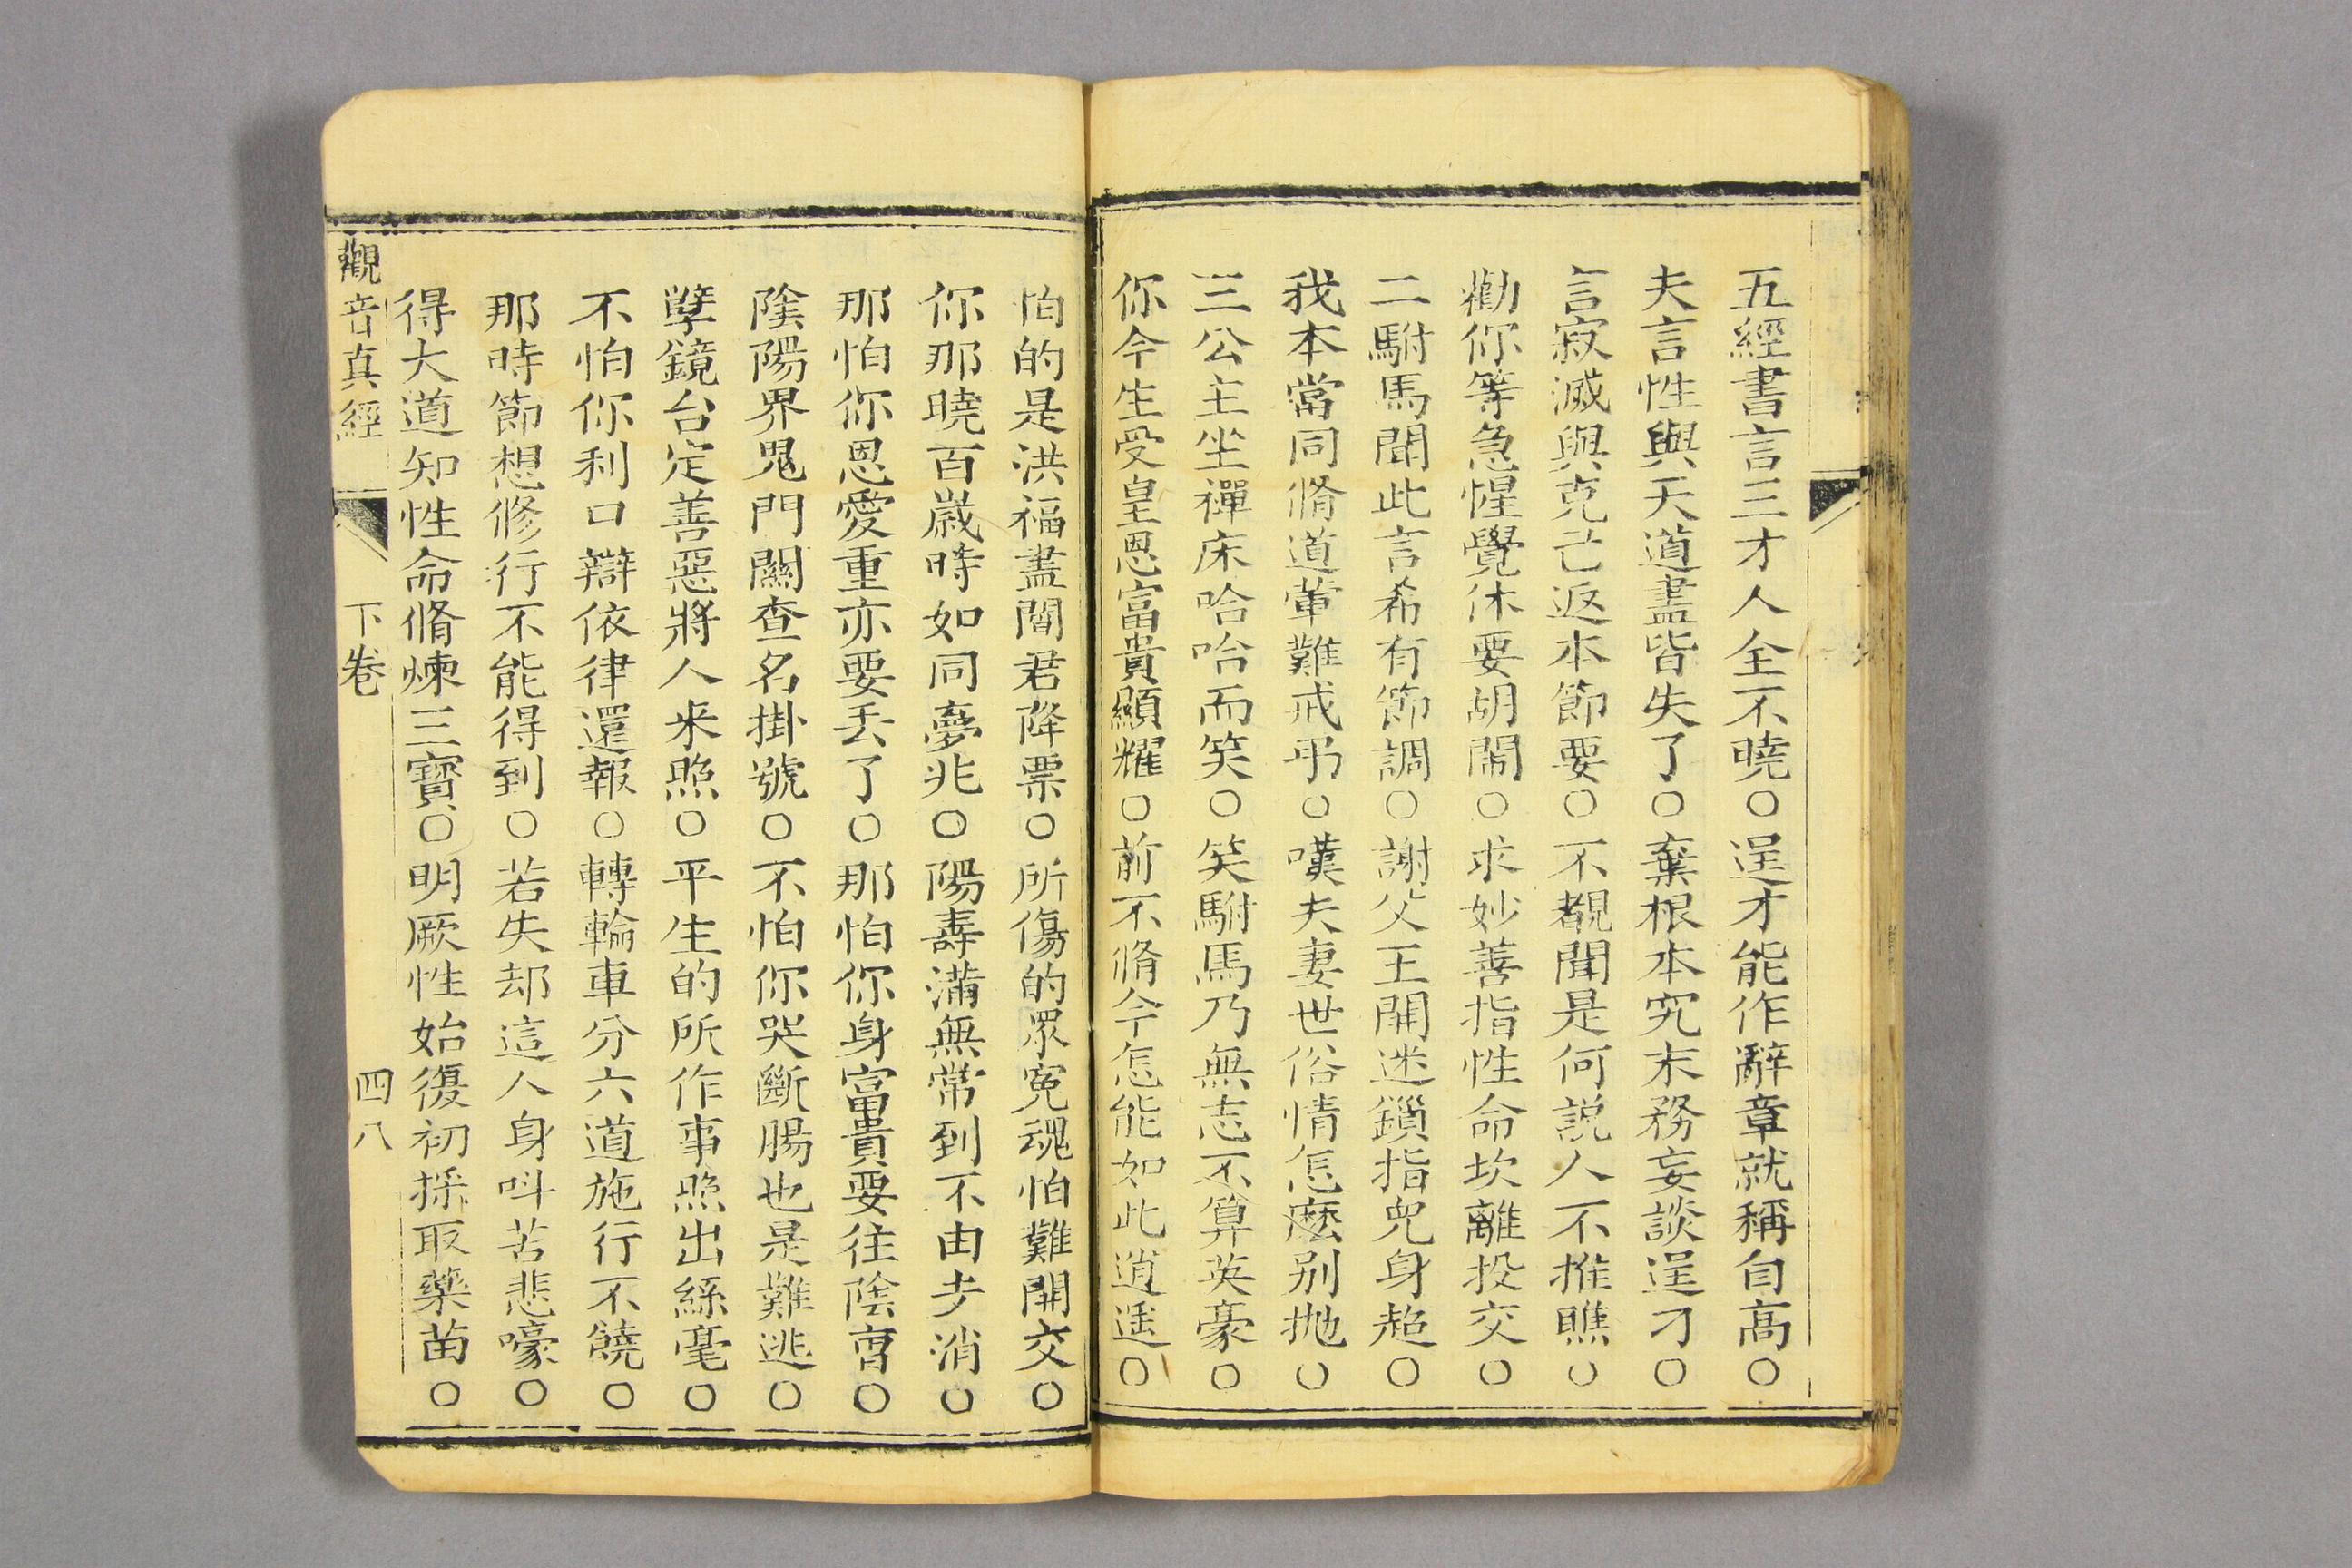 五經書言三才人全不曉○逞才能作辭章就稱自高○
夫言性與天道盡皆失了○棄根本究末務妄談逞刁○
言寂滅與克己返本節要○不覩聞是何説人不推瞧○
勸你等急惺覺休要胡鬧○求妙善指性命坎離投交○
二駙馬聞此言希有節調○謝父王開迷鎖指兜身超○
我本當同脩道葷難戒乎○嘆夫妻世俗情怎麽别抛○
三公主坐禪床哈哈而笑○笑駙馬乃無志不算英豪○
你今生受皇恩富貴顯耀○前不脩今怎能如此逍遥○
怕的是洪福盡閻君降票○所傷的眾冤魂怕難開交○
你那曉百歲時如同夢兆○陽壽滿無常到不由步消○
那怕你恩愛重亦要丢了○那怕你身富貴要往陰曹○
陰陽界鬼門關查名掛號○不怕你哭斷腸也是難逃○
孽鏡台定善惡將人来照○平生的所作事照出絲毫○
不怕你利口辯依律還報○轉輪車分六道施行不饒○
那時節想修行不能得到○若失却這人身呌苦悲嚎○
得大道知性命脩煉三寶○明厥性始復初採取藥苗○
觀音真經 下卷 四八